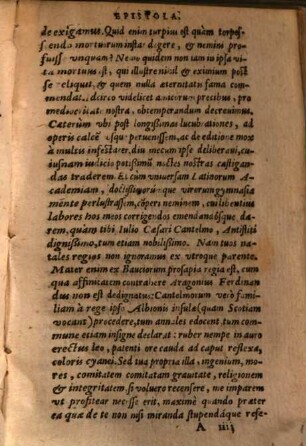 EPISTOLA.
de exigamus. Quid enim turpius est quàm torpes-
sendo mortuorum instar degere, & nemini pro-
fuisse unquam? Neque quidem non iam in ipsa vi-
ta mortuus est, qui illustre nihil & eximium post se
reliquit, & quem nulla æternitati fama com-
mendat. idcirco videlicet amicorum precibus, pro
mediocritate nostra, obtemperandum decreuimus.
Cæterùm vbi post longissimas lucubrationes, ad
operis calcem usque peruenissem, ac de editione mox
à multis infestarer, diu mecum ipse deliberaui, cu-
iusnam iudicio potissimum noctes nostras castigan-
das traderem. Et cùm vniuersam Latinorum A-
cademiam, doctissimorumque virorum gymnasia
mente perlustrassem, cōperi neminem, cui libentius
labores hos meos corrigendos emendandosque da-
rem, quam tibi Iulio Cæsari Cantelmo, Antistiti
dignissimo, tum etiam nobilissimo. Nam tuos na-
tales regios non ignoramus ex vtroque parente.
Mater enim ex Bauciorum prosapia regia est, cum
qua affinitatem contrahere Aragonius Ferdinan
dus non est dedignatus: Cantelmorum verò fami-
liam à rege ipso Albionis insulæ (quam Scotiam
vocant) procedere, tum annales edocent, tum com-
mune etiam insigne declarat: ruber nempe in auro
erectus leo, patenti ore cauda ad caput reflexa,
coloris cyanei. Sed tua propria illa, ingenium, mo-
res, comitatem comitatam grauitate, religionem
& integritatem, si voluero recensere, me imparem
vt profitear necesse erit, maximè quando præter
ea quæ de te non nisi miranda stupendáque refe-
A iiij